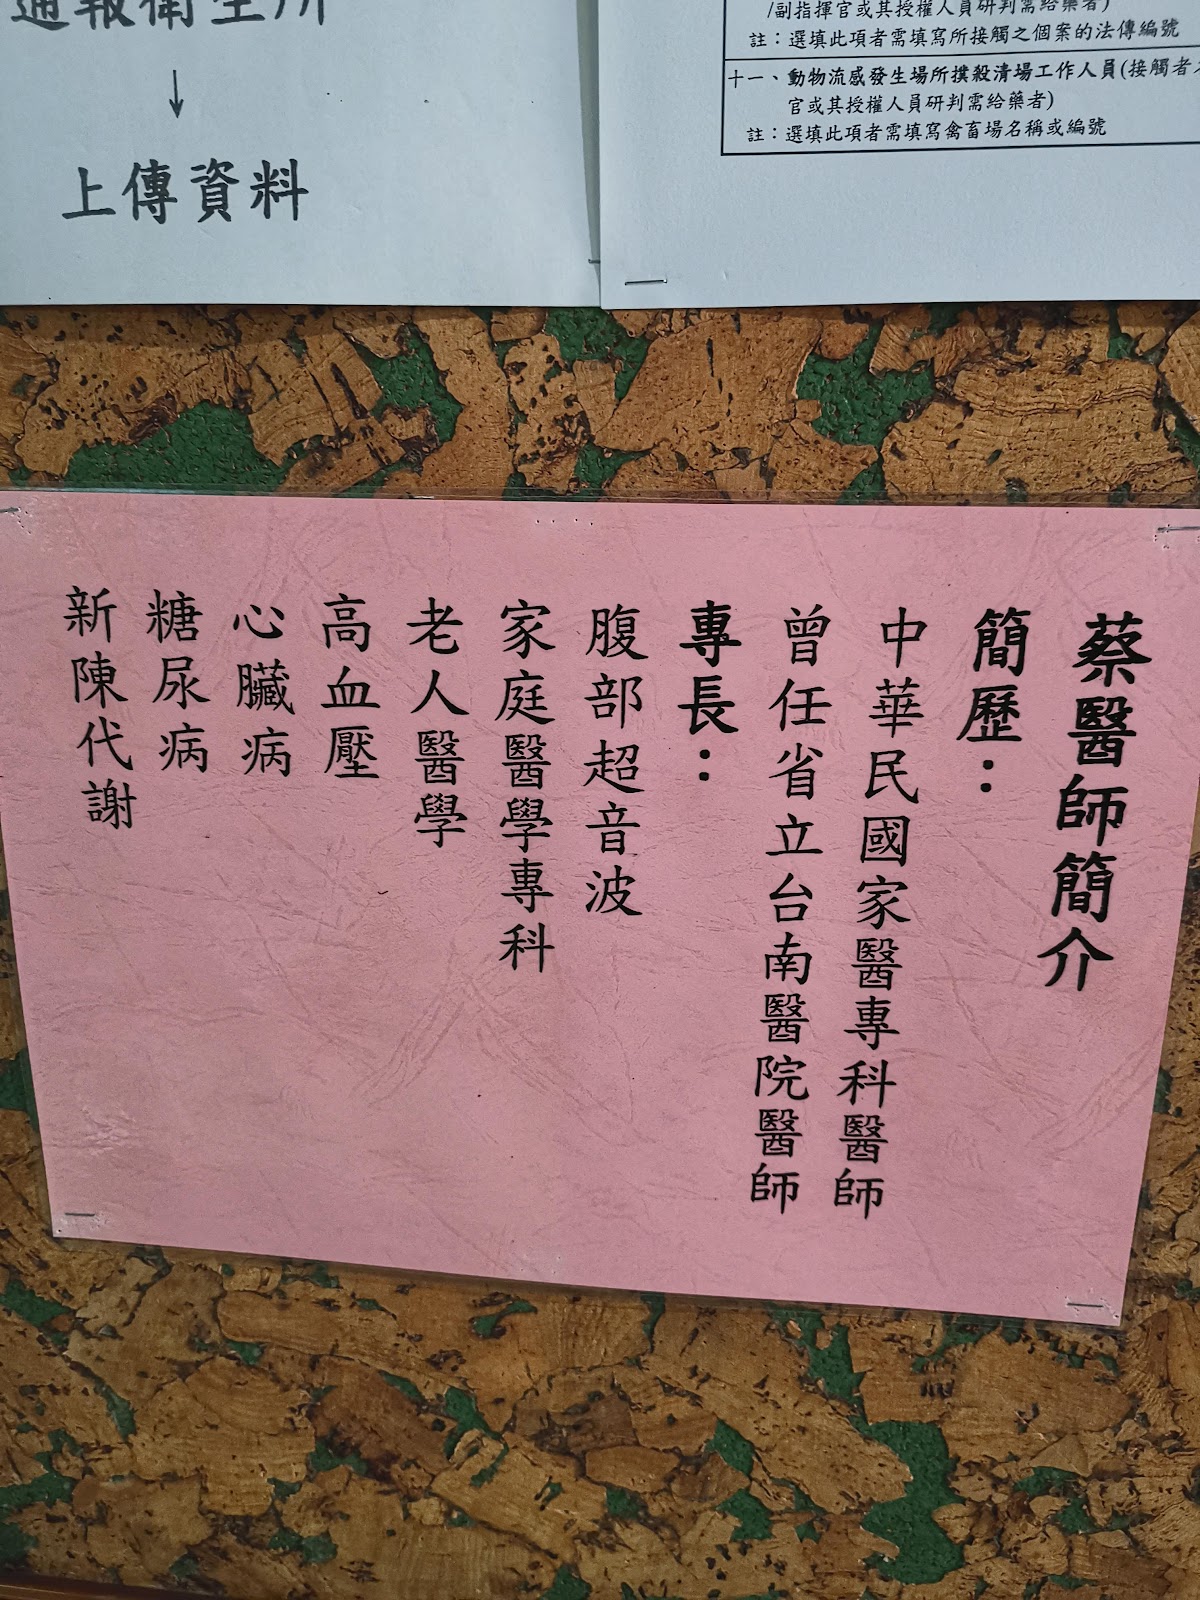 通報衛生所
↓
上傳資料
/副指揮官或其授權人員研判需給藥者)
註：選填此項者需填寫所接觸之個案的法傳編號
十一、動物流感發生場所撲殺清場工作人員(接觸者
官或其授權人員研判需給藥者)
註：選填此項者需填寫禽畜場名稱或編號
蔡醫師簡介
簡歷：
中華民國家醫專科醫師
曾任省立台南醫院醫師
專長：
腹部超音波
家庭醫學專科
老人醫學
高血壓
心臟病
糖尿病
新陳代謝